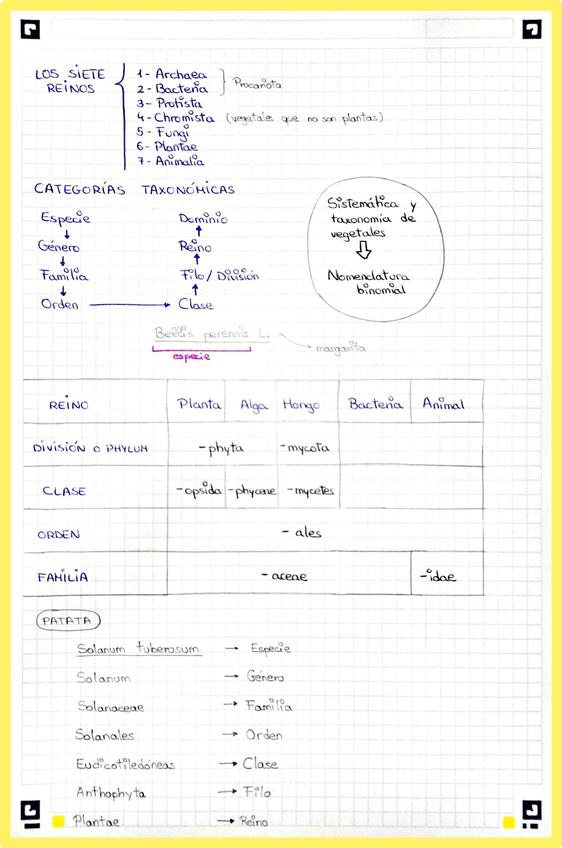 LOS SIETE REINOS
1- Archaea
2- Bacteria
Procariota
3- Protista
4- Chromista (vegetales que no son plantas)
5- Fungi
6- Plantae
7- Animalia
CATEGORÍAS TAXONÓMICAS
Especie
Género
Familia
Orden
Clase
Filo / División
Reino
Dominio
Sistemática y
taxonomía de
vegetales
Nomenclatura
binomial
Bellis perennis L.
margarita
especie
REINO Planta Alga Hongo Bacteria Animal
DIVISIÓN O PHYLUM -phyta -mycota
CLASE -opsida -phyceae -mycetes
ORDEN - ales
FAMILIA - aceae -idae
PATATA
Solanum tuberosum → Especie
Solanum → Género
Solanaceae → Familia
Solanales → Orden
Eudicotiledóneas → Clase
Anthophyta → Filo
Plantae → Reino